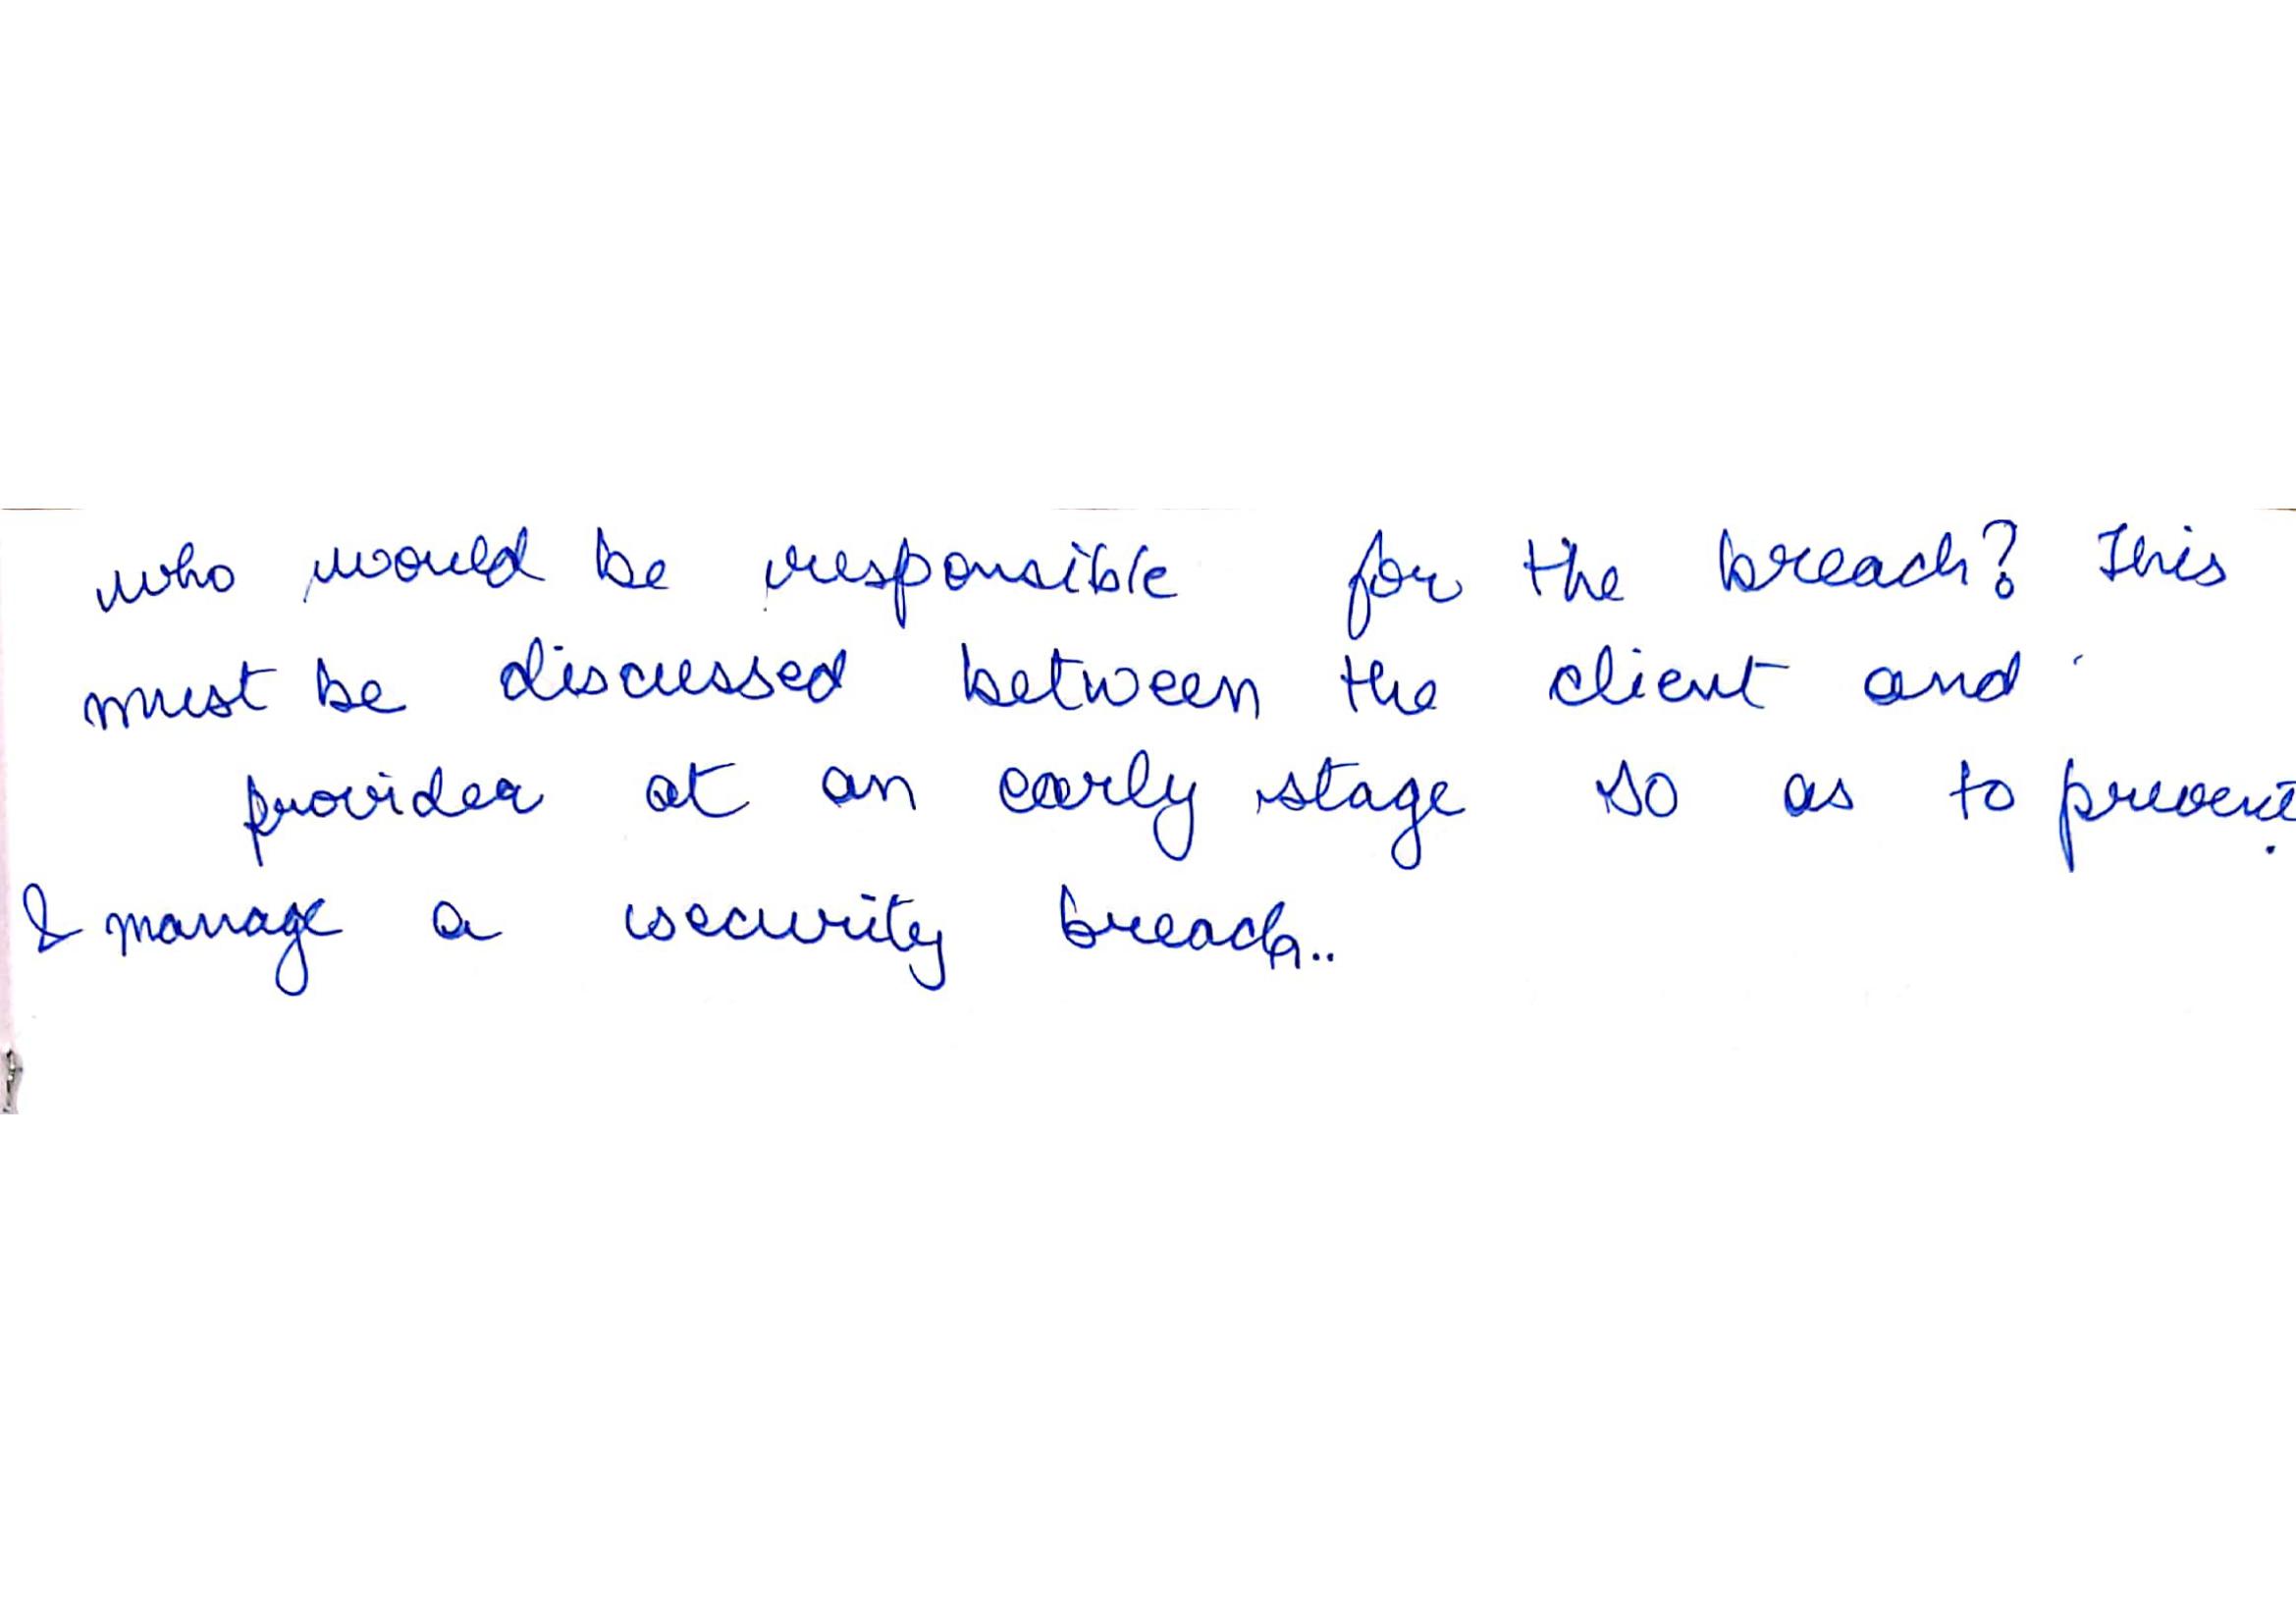 who would be responsible for the breach? This
must be discussed between the client and
provider at an early stage so as to prevent
& manage a security breach..